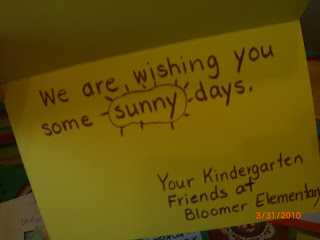 We are wishing you
some sunny days.
Your Kindergarten
Friends at
Bloomer Elementary
3/31/2010